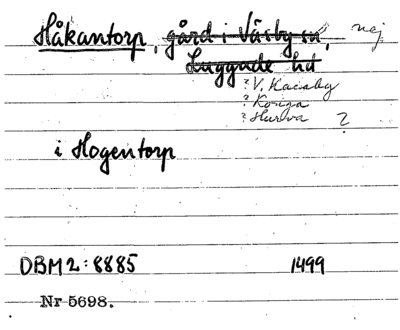 Håkantorp, gård i Väsby sn, nej
Luggude hd
? V. Karaby
? Korga
? Hurva ?
i Hogentorp
DBM 2:8885 1499
Nr 5698.